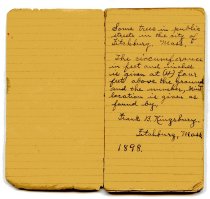 Some trees in public
streets in the city of
Fitchburg, Mass.
The circumference
in feet and inches
is given at (4) four
feet above the ground
and the number, and
location is given as
found by
Frank B. Kingsbury.
Fitchburg, Mass.
1898.